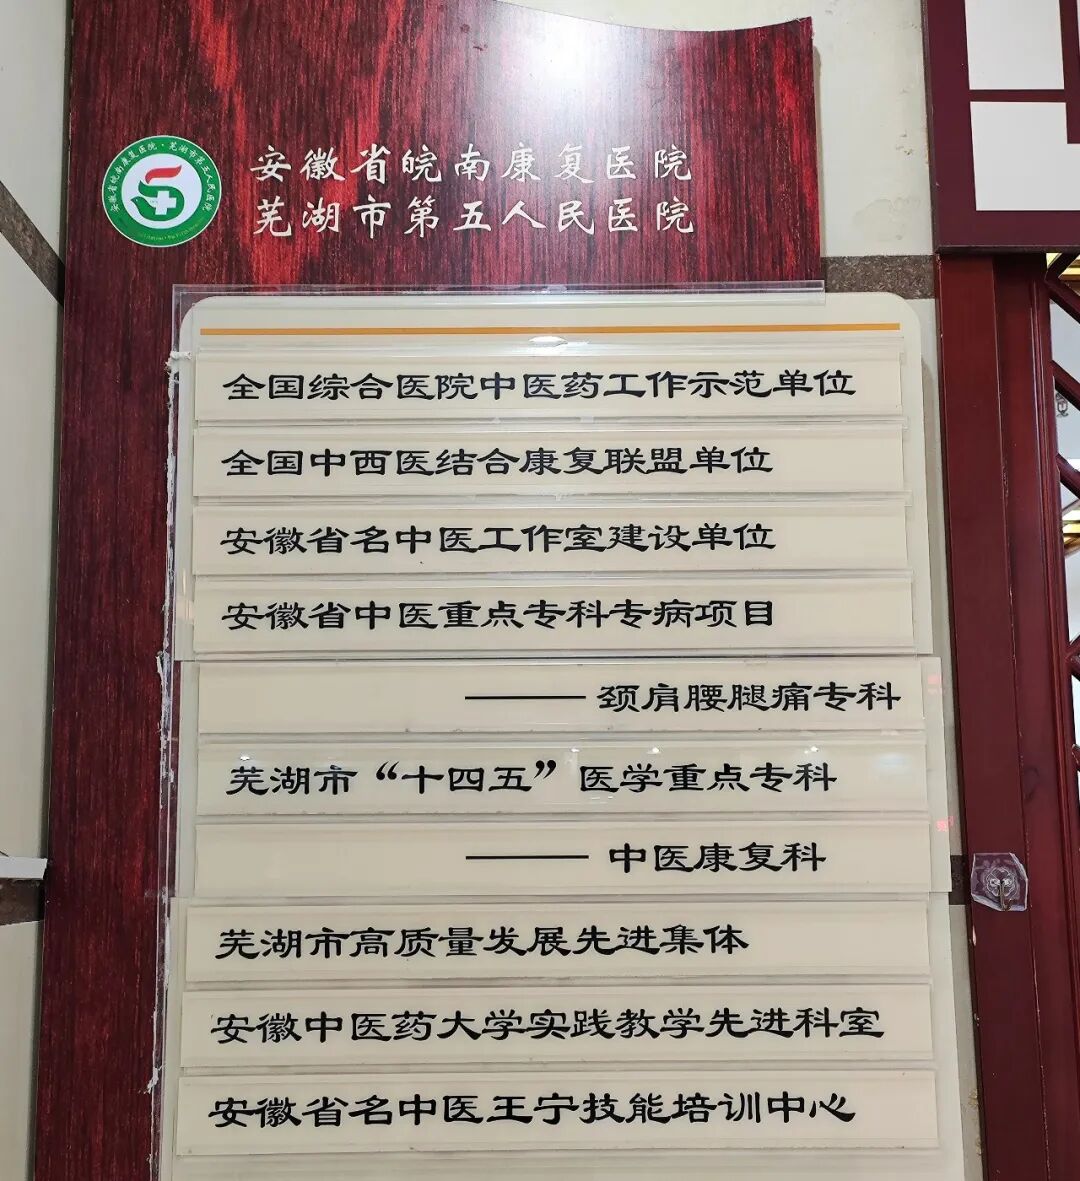 安徽省皖南康复医院·芜湖市第五人民医院
安徽省皖南康复医院
芜湖市第五人民医院
全国综合医院中医药工作示范单位
全国中西医结合康复联盟单位
安徽省名中医工作室建设单位
安徽省中医重点专科专病项目
——颈肩腰腿痛专科
芜湖市“十四五”医学重点专科
——中医康复科
芜湖市高质量发展先进集体
安徽中医药大学实践教学先进科室
安徽省名中医王宁技能培训中心